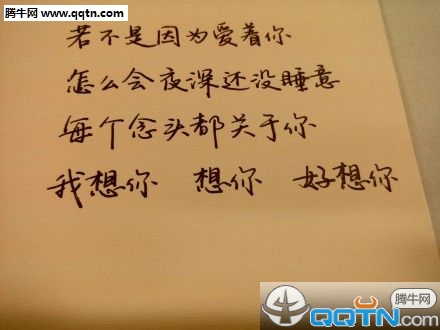 腾牛网 www.qqtn.com
若不是因为爱着你
怎么会夜深还没睡意
每个念头都关于你
我想你 想你 好想你
腾牛网
QQTN.COM